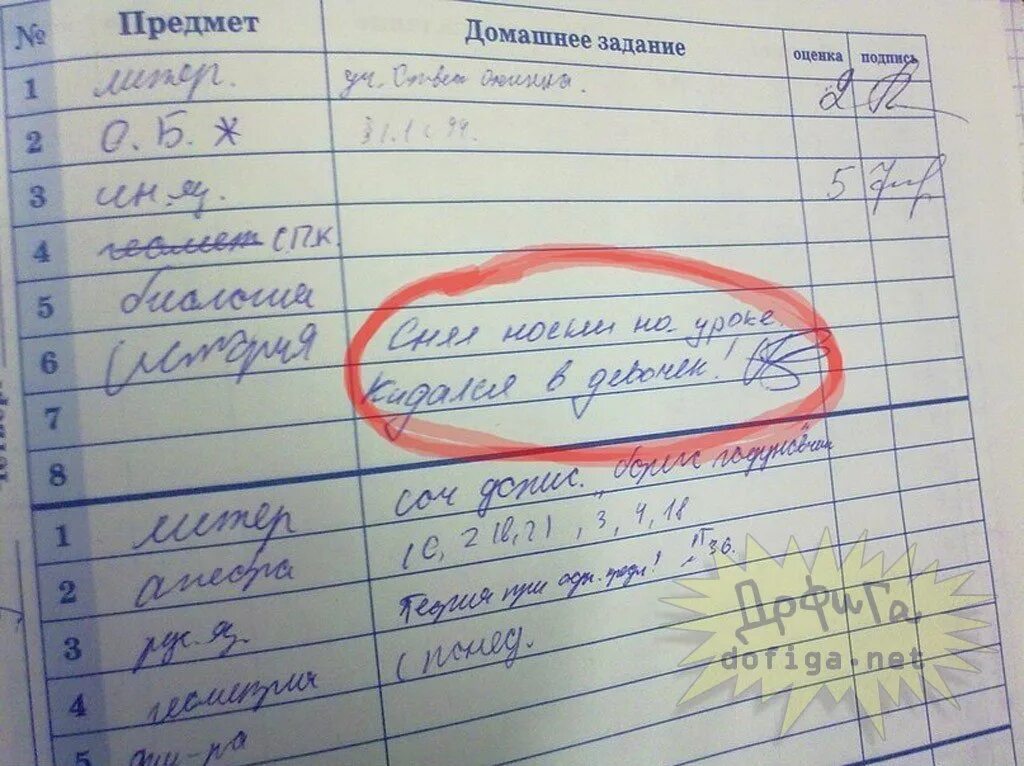 № Предмет Домашнее задание оценка подпись
1 литер. уч. 2
2 О.Б.Ж §1.1 с 99.
3 ин.яз. 5
4 геомет с.п.к.
5 биология
6 история Снял носки на уроке.
7 Кидался в девочек!
8
1 литер соч допис.
2 алгебра 1С, 218, 21, 3, 4, 18
3 рус.яз. Теория при! 36.
4 геометрия с понед.
5 физ-ра
ДоФиГа.
dofiga.net